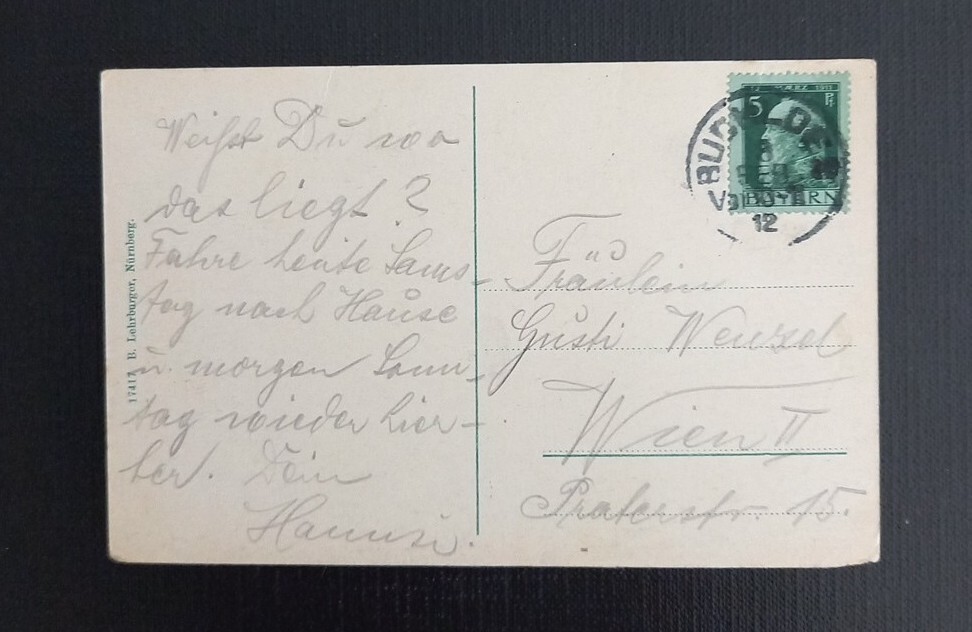 Weißt Du wo
das liegt?
Fahre heute Sams-
tag nach Hause
u. morgen Sonn-
tag wieder hier-
her. Dein
Hansi.
17417 B. Lehrburger, Nürnberg.
MÄRZ 1911
5 Pf
BAYERN
12
Fräulein
Gusti Wenzel
Wien II
Praterstr. 15.